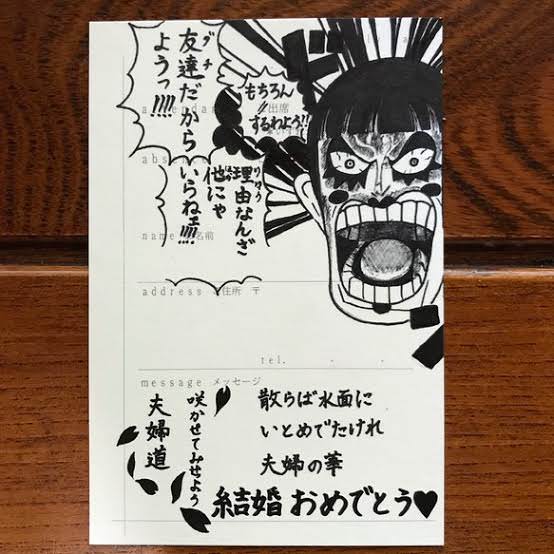 もちろん
出席
するわよう!!
ダチ
友達だから
ようっ!!!!
りゆう
理由なんざ
ほか
他にゃ
いらねェ!!!!
name 名前
address ご住所 〒
tel. - -
message メッセージ
散らば水面に
いとめでたけれ
夫婦の華
咲かせてみせよう
夫婦道
結婚 おめでとう♥